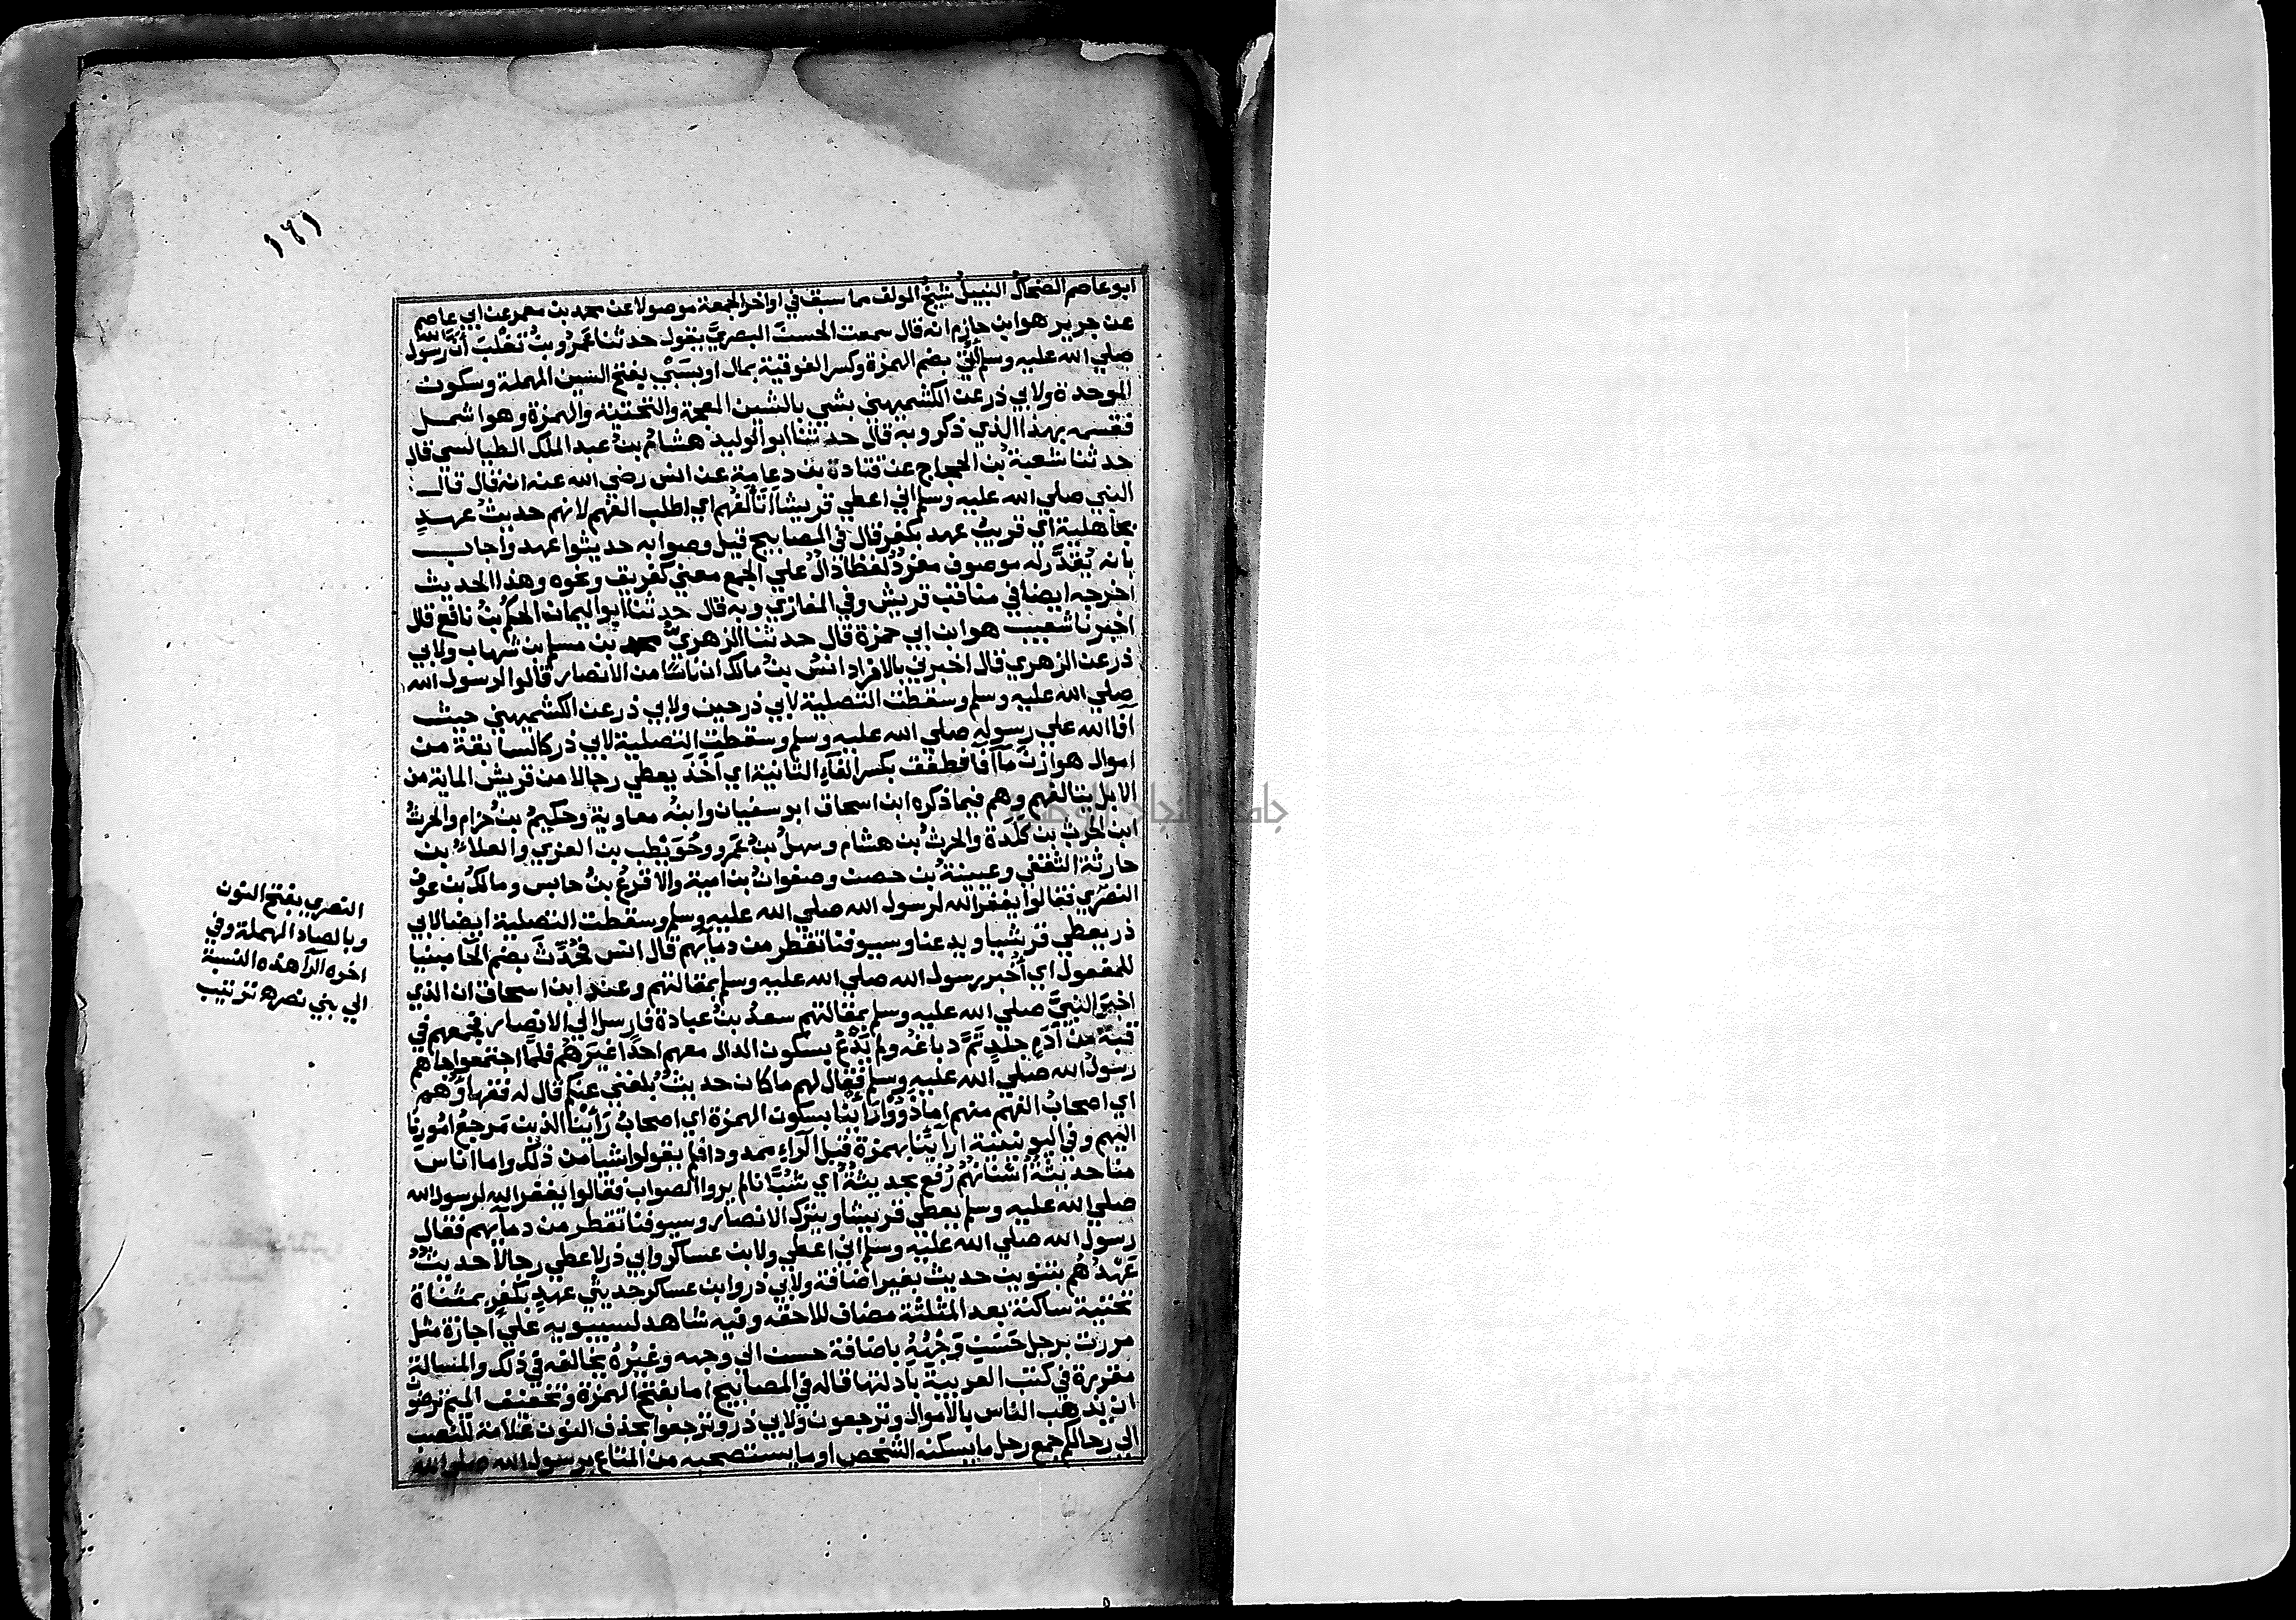 ١٦١
ابو عاصم الضحاك النبيل شيخ المولف مما سبق في اواخر الجمعة موصولا عن محمد بن معمر عن ابي عاصم
عن جرير هو ابن حازم انه قال سمعت الحسن البصري يقول حدثنا عمرو بن تغلب ان رسول الله
صلي الله عليه وسلم اتي بضم الهمزة وكسر الفوقية بمال او بسبي بفتح السين المهملة وسكون
الموحدة ولابي ذر عن الكشميهني بشي بالشين المعجمة والتحتية والهمزة وهو اشمل
فقسمه بهذا الذي ذكر وبه قال حدثنا ابو الوليد هشام بن عبد الملك الطيالسي قال
حدثنا شعبة بن الحجاج عن قتادة بن دعامة عن انس رضي الله عنه انه قال قال
النبي صلي الله عليه وسلم اني اعطي قريشا اتالفهم اي اطلب الفهم لانهم حديث عهد
بجاهلية اي قريب عهد بكفر قال في المصابيح قيل وصوابه حديثوا عهد واجاب
بانه يقدر له موصوف مفرد لفظا دال علي الجمع معني كفريق ونحوه وهذا الحديث
اخرجه ايضا في مناقب قريش وفي المغازي وبه قال حدثنا ابو اليمان الحكم بن نافع قال
اخبرنا شعيب هو ابن ابي حمزة قال حدثنا الزهري محمد بن مسلم بن شهاب ولابي
ذر عن الزهري قال اخبرني بالافراد انس بن مالك ان ناسا من الانصار قالوا لرسول الله
صلي الله عليه وسلم وسقطت التصلية لابي ذر حين ولابي ذر عن الكشميهني حيث
افا الله علي رسوله صلي الله عليه وسلم وسقطت التصلية لابي ذر كالسابقة من
اموال هوازن ما افا فطفق بكسر الفاء الثانية اي اخذ يعطي رجالا من قريش الماية من
الابل يتالفهم وهم فيما ذكره ابن اسحاق ابو سفيان وابنه معاوية وحكيم بن حزام والحرث
ابن الحرث بن كلدة والحرث بن هشام وسهل بن عمرو وحويطب بن العزي والعلاء بن
حارثة الثقفي وعيينة بن حصن وصفوان بن امية والاقرع بن حابس ومالك بن عوف
النصري فقالوا يغفر الله لرسول الله صلي الله عليه وسلم وسقطت التصلية ايضا لابي
ذر يعطي قريشا ويدعنا وسيوفنا تقطر من دمآيهم قال انس فحدث بضم الحا مبنيا
للمفعول اي اخبر رسول الله صلي الله عليه وسلم بمقالتهم وعند ابن اسحاق ان الذي
اخبر النبي صلي الله عليه وسلم بمقالتهم سعد بن عبادة فارسل الي الانصار فجمعهم في
قبة من ادم جلد تم دباغه ولم يدع بسكون الدال معهم احدا غيرهم فلما اجتمعوا جاهم
رسول الله صلي الله عليه وسلم فقال لهم ما كان حديث بلغني عنكم قال له فقهاؤهم
اي اصحاب الفهم منهم اما ذووا رأينا بسكون الهمزة اي اصحاب رأينا الذين مرجع امورنا
اليهم وفي اليونينية ارآيينا بهمزة قبل الرآء ممدودا فلم يقولوا شيا من ذلك واما اناس
منا حديثة اسنانهم رفع بحديثة اي شبانا لم يروا الصواب فقالوا يغفر الله لرسول الله
صلي الله عليه وسلم يعطي قريشا ويترك الانصار وسيوفنا تقطر من دمآيهم فقال
رسول الله صلي الله عليه وسلم اني اعطي ولابن عساكر وابي ذر لاعطي رجالا حديث
عهدهم بتنوين حديث بغير اضافة ولابي ذر وابن عساكر حديثي عهد بكفر بمثناة
تحتية ساكنة بعد المثلثة مضاف للاحقه وفيه شاهد لسيبويه علي اجازة مثل
مررت برجل حسن وجهه باضافة حسن الي وجهه وغيره يخالفه في ذلك والمسالة
مقررة في كتب العربية بادلتها قاله في المصابيح اما بفتح الهمزة وتخفيف الميم ترضون
ان يذهب الناس بالاموال وترجعون ولابي ذر وترجعوا بحذف النون علامة للنصب
الي رحالكم جمع رحل ما يسكنه الشخص او ما يستصحبه من المتاع برسول الله صلي الله
النصري بفتح النون
وبالصاد المهملة وفي
اخره الرآ هذه النسبة
الي بني نصره ترتيب
جامعة النجاح الوطنية